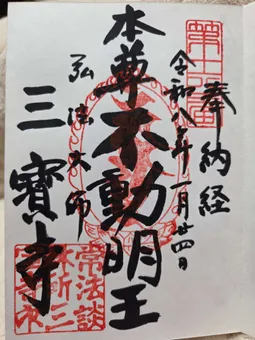 奉納経
令和八年一月廿四日
本尊不動明王
弘法大師
三寳寺